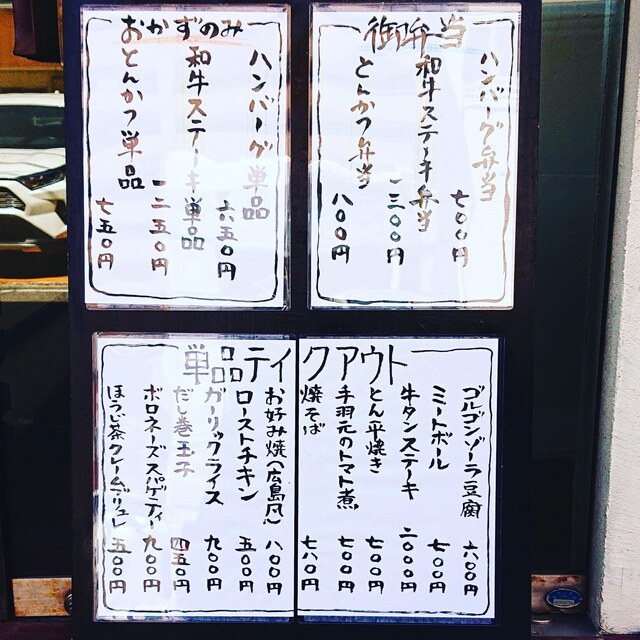 御弁当
ハンバーグ弁当 七〇〇円
和牛ステーキ弁当 一三〇〇円
とんかつ弁当 八〇〇円
おかずのみ
ハンバーグ単品 六五〇円
和牛ステーキ単品 一二五〇円
とんかつ単品 七五〇円
単品テイクアウト
ゴルゴンゾーラ豆腐 六〇〇円
ミートボール 七〇〇円
牛タンステーキ 二〇〇〇円
とん平焼き 七〇〇円
手羽元のトマト煮 七〇〇円
焼そば 七八〇円
お好み焼(広島風) 八〇〇円
ローストチキン 五〇〇円
ガーリックライス 九〇〇円
だし巻玉子 四五〇円
ボロネーズスパゲティー 九〇〇円
ほうじ茶クレームブリュレ 五〇〇円